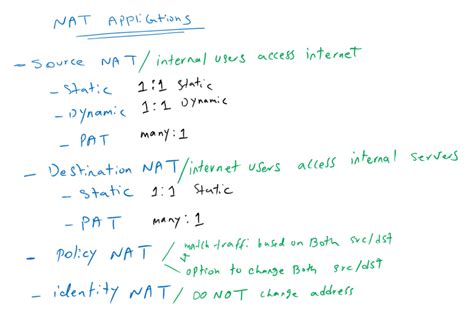 NAT Applications
- Source NAT / internal users access internet
- Static 1:1 Static
- Dynamic 1:1 Dynamic
- PAT many:1
- Destination NAT / internet users access internal servers
- Static 1:1 Static
- PAT many:1
- Policy NAT / match traffi based on Both src/dst
option to change Both src/dst
- identity NAT / DO NOT change address